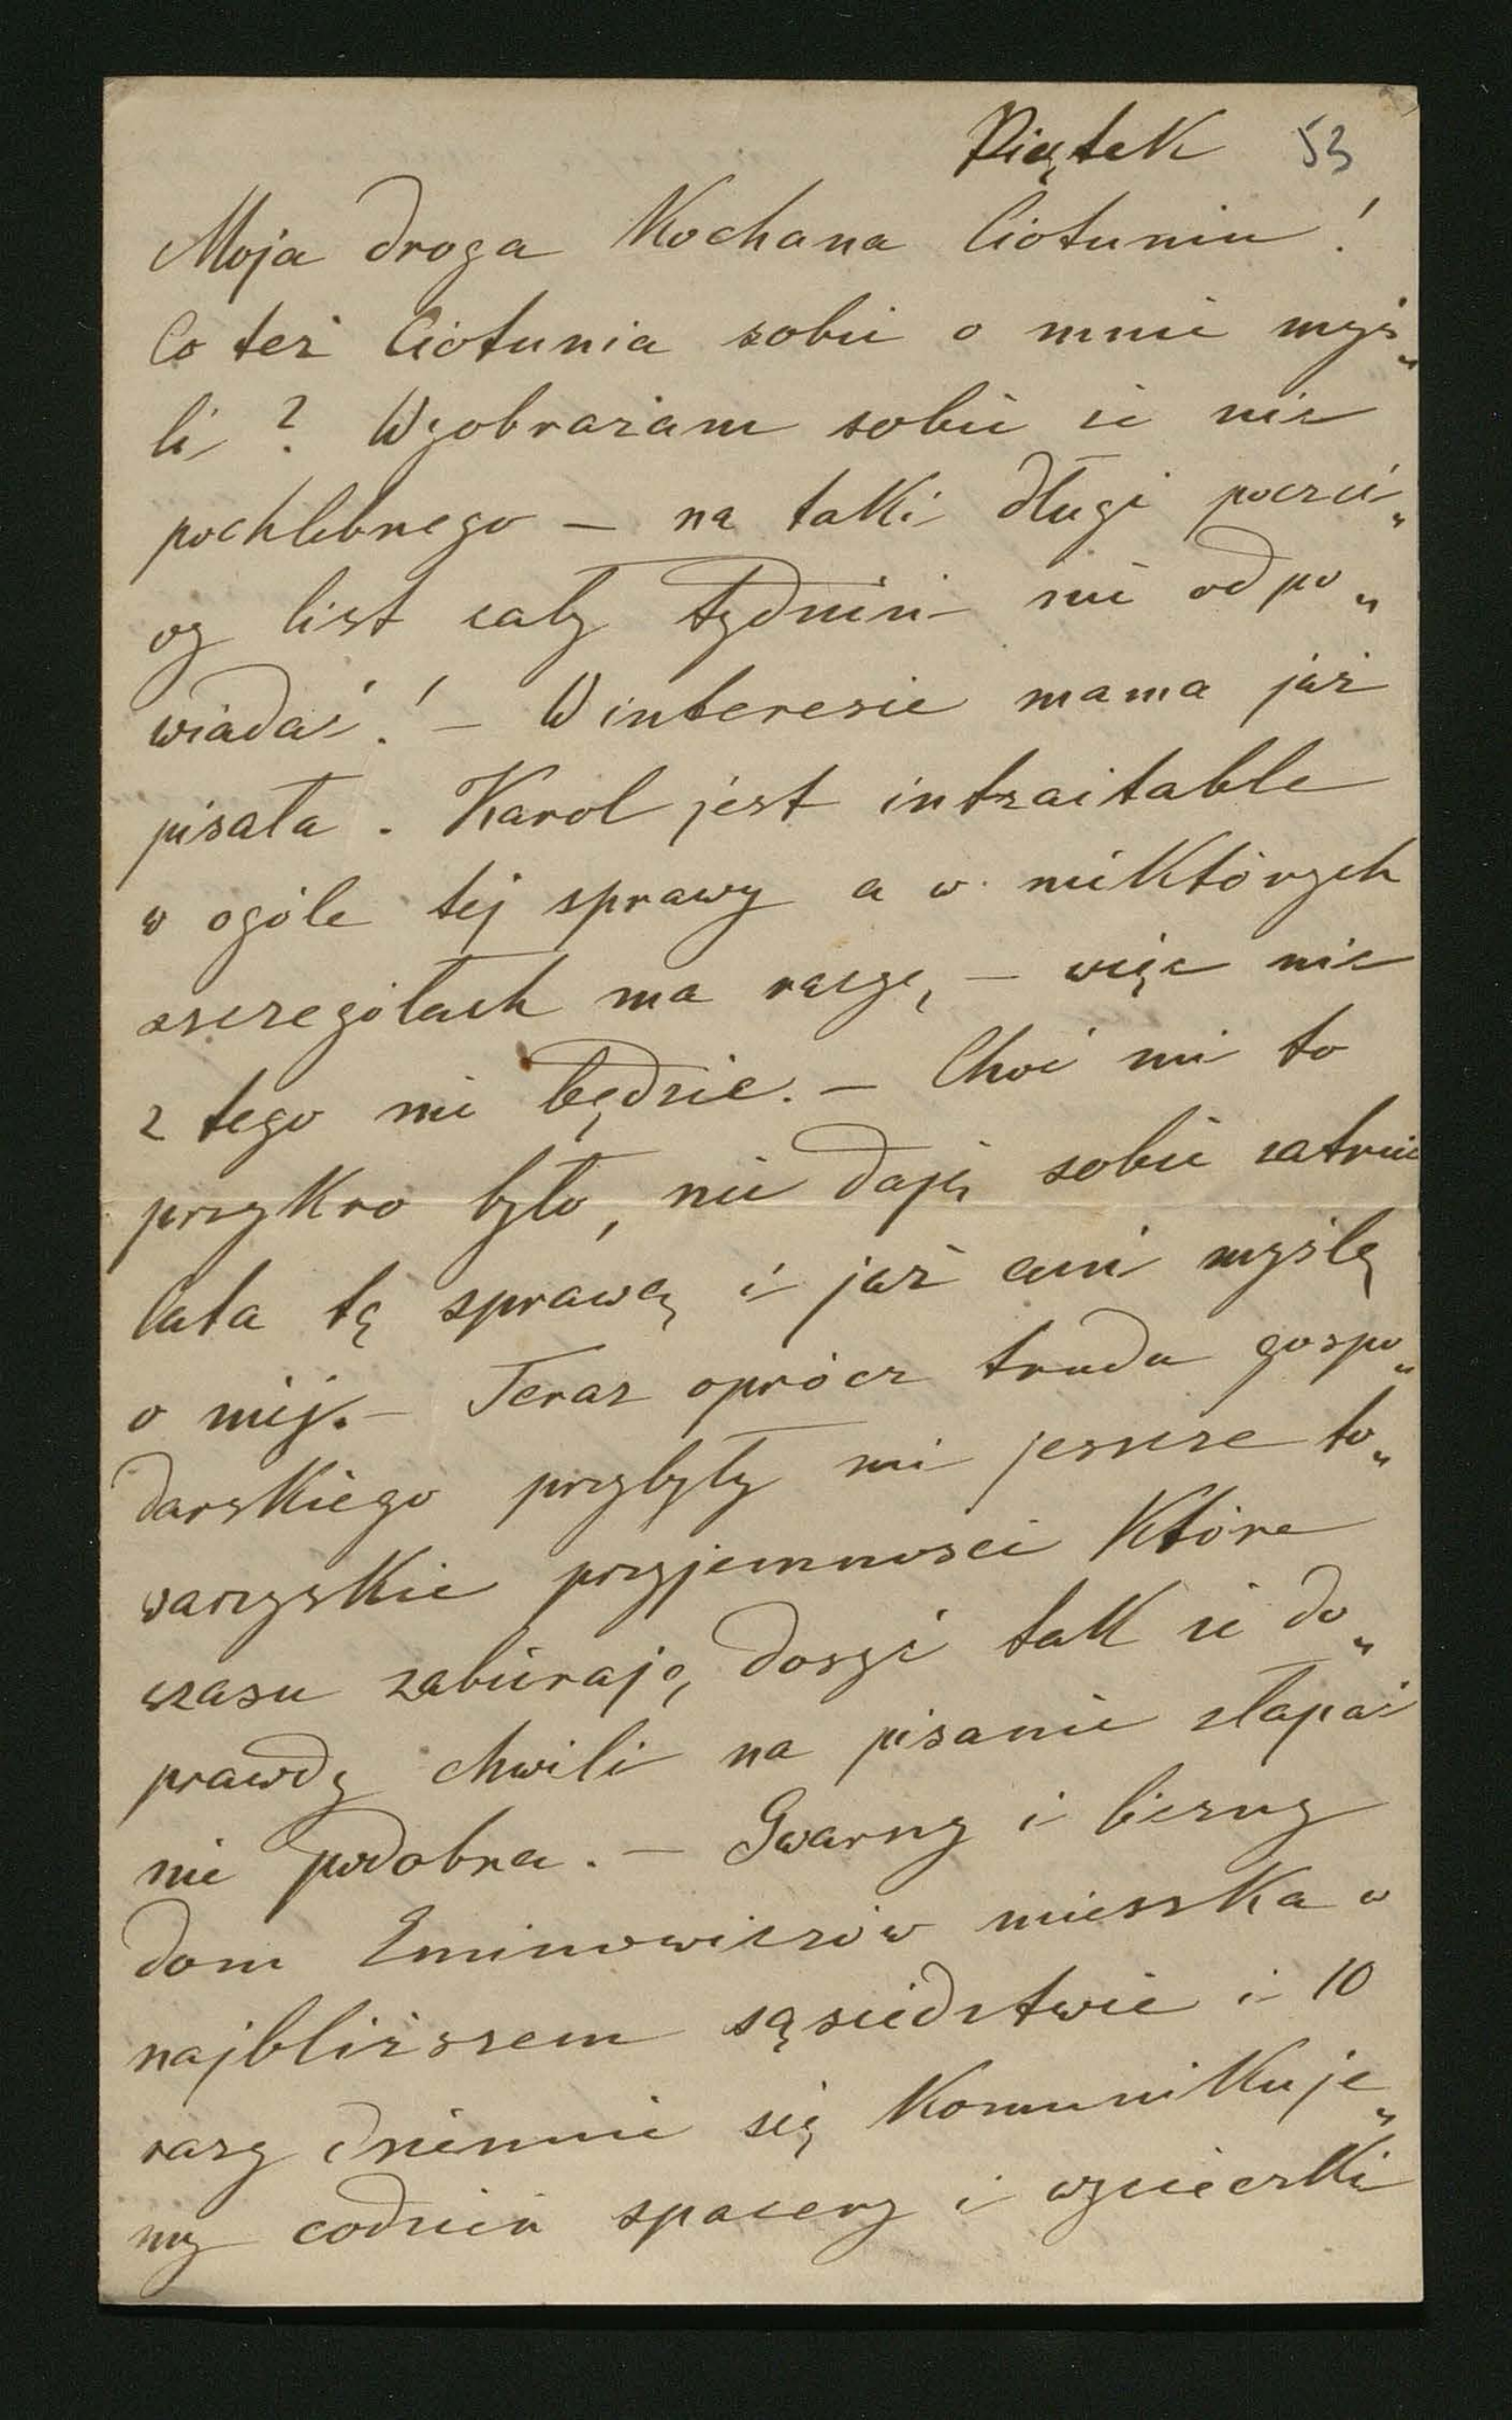 Piątek 53
Moja droga Kochana Ciotuniu!
Co też Ciotunia sobie o mnie myś„
li? Wyobrażam sobie że nic
pochlebnego – na taki długi poczci„
wy list cały tydzień nie odpo„
wiadać! – W interesie mama już
pisała. Karol jest intraitable
w ogóle tej sprawy a w niektórych
szczegółach ma rację, – więc nic
z tego nie będzie. – Choć mi to
przykro było, nie daję sobie zatruć
lata tą sprawą i już ani myślę
o niej. – Teraz oprócz trudu gospo„
darskiego przybyły mi jeszcze to„
warzyskie przyjemności które
czasu zabierają, dosyć tak że do„
prawdy chwili na pisanie złapać
nie podobna. – Gwarny i liczny
dom Eminowiczów mieszka w
najbliższem sąsiedztwie i 10
razy dziennie się komunikuje„
my codzień spacery i wycieczki